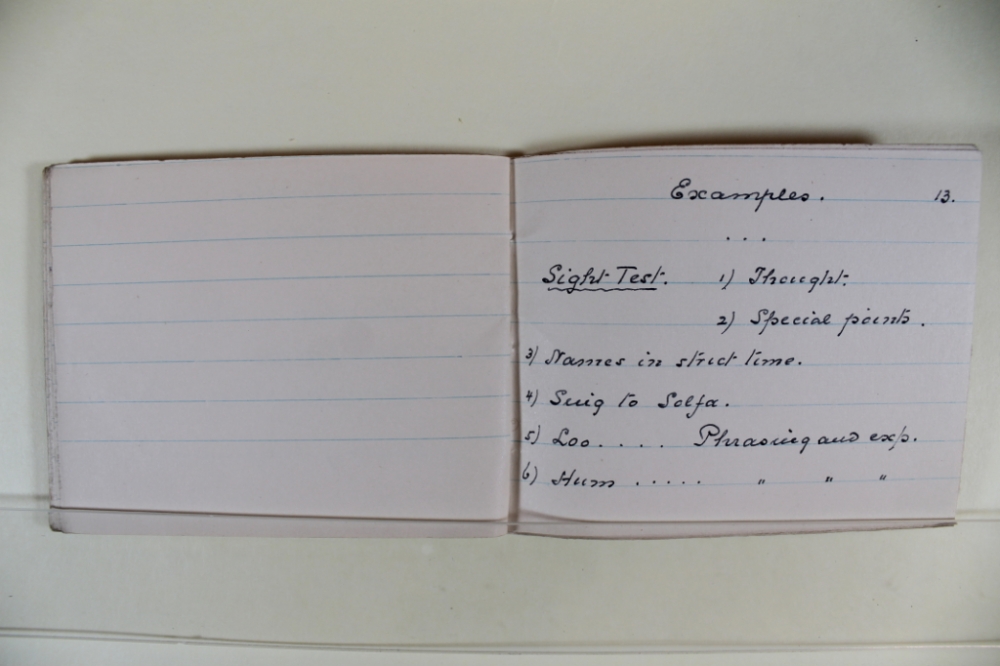 Examples. 13.
...
Sight Test. 1) Thought.
2) Special points.
3) Names in strict time.
4) Sing to Solfa.
5) Loo.... Phrasing and exp.
6) Hum ..... " " "